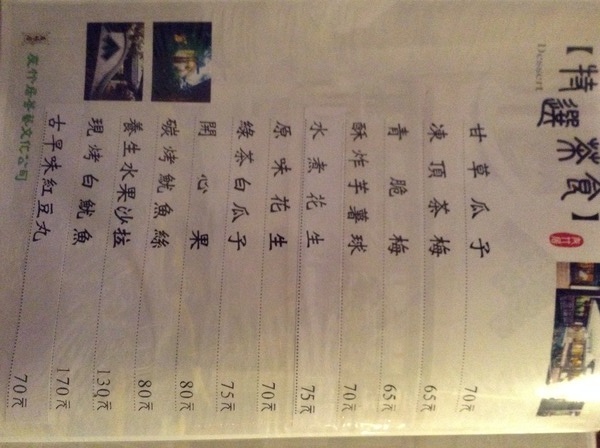 【特選茶食】
Dessert
甘草瓜子 70元
凍頂茶梅 65元
青脆梅 65元
酥炸芋薯球 70元
水煮花生 75元
原味花生 70元
綠茶白瓜子 75元
開心果 80元
碳烤魷魚絲 80元
養生水果沙拉 130元
現烤白魷魚 170元
古早味紅豆丸 70元
友竹居茶藝文化公司